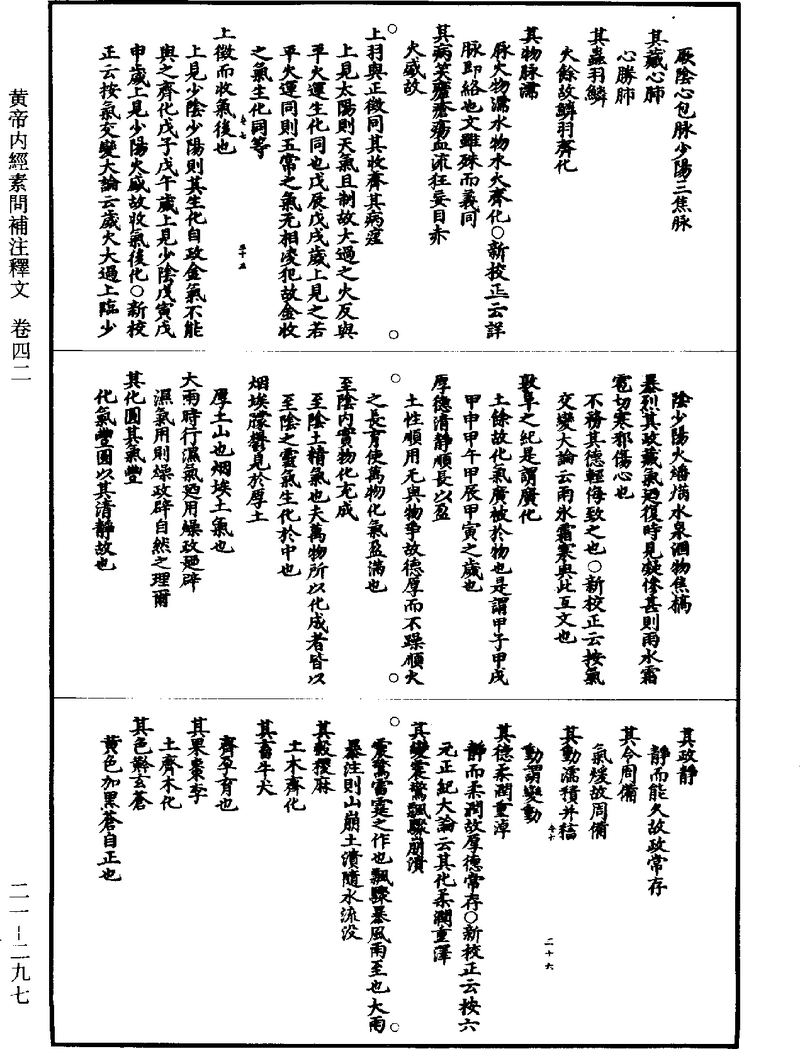 黄帝内經素問補注釋文　卷四二
厥陰心包脉少陽三焦脉
其藏心肺
心勝肺
其蟲羽鱗
火餘故鱗羽齊化
其物脉濡
脉火物濡水物水火齊化○新校正云詳
脉即絡也文雖殊而義同
其病笑瘧瘡瘍血流狂妄目赤
火盛故
上羽與正徵同其收齊其病痓
上見太陽則天氣且制故太過之火反與
平火運生化同也戊辰戊戌歲上見之若
平火運同則五常之氣无相凌犯故金收
之氣生化同等
上徵而收氣後也
上見少陰少陽則其生化自政金氣不能
與之齊化戊子戊午歲上見少陰戊寅戊
申歲上見少陽火盛故收氣後化○新校
正云按氣交變大論云歲火大過上臨少
陰少陽火燔焫水泉涸物焦槁
暴烈其政藏氣迺復時見凝慘甚則雨水霜
雹切寒邪傷心也
不務其德輕侮致之也○新校正云按氣
交變大論云雨氷霜寒與此互文也
敦阜之紀是謂廣化
土餘故化氣廣被於物也是謂甲子甲戌
甲申甲午甲辰甲寅之歲也
厚德清靜順長以盈
土性順用无與物争故德厚而不躁順火
之長育使萬物化氣盈滿也
至陰内實物化充成
至陰土精氣也夫萬物所以化成者皆以
至陰之靈氣生化於中也
烟埃朦鬱見於厚土
厚土山也烟埃土氣也
大雨時行濕氣迺用燥政迺辟
濕氣用則燥政辟自然之理爾
其化圓其氣豐
化氣豐圓以其清靜故也
其政靜
靜而能久故政常存
其令周備
氣緩故周備
其動濡積并稸
動謂變動
其德柔潤重淖
靜而柔潤故厚德常存○新校正云按六
元正紀大論云其化柔潤重澤
其變震驚飄驟崩潰
震驚雷霆之作也飄驟暴風雨至也大雨
暴注則山崩土潰隨水流没
其穀稷麻
土木齊化
其畜牛犬
齊孕育也
其果棗李
土齊木化
其色黅玄蒼
黄色加黑蒼自正也
二十六
二一—二九七